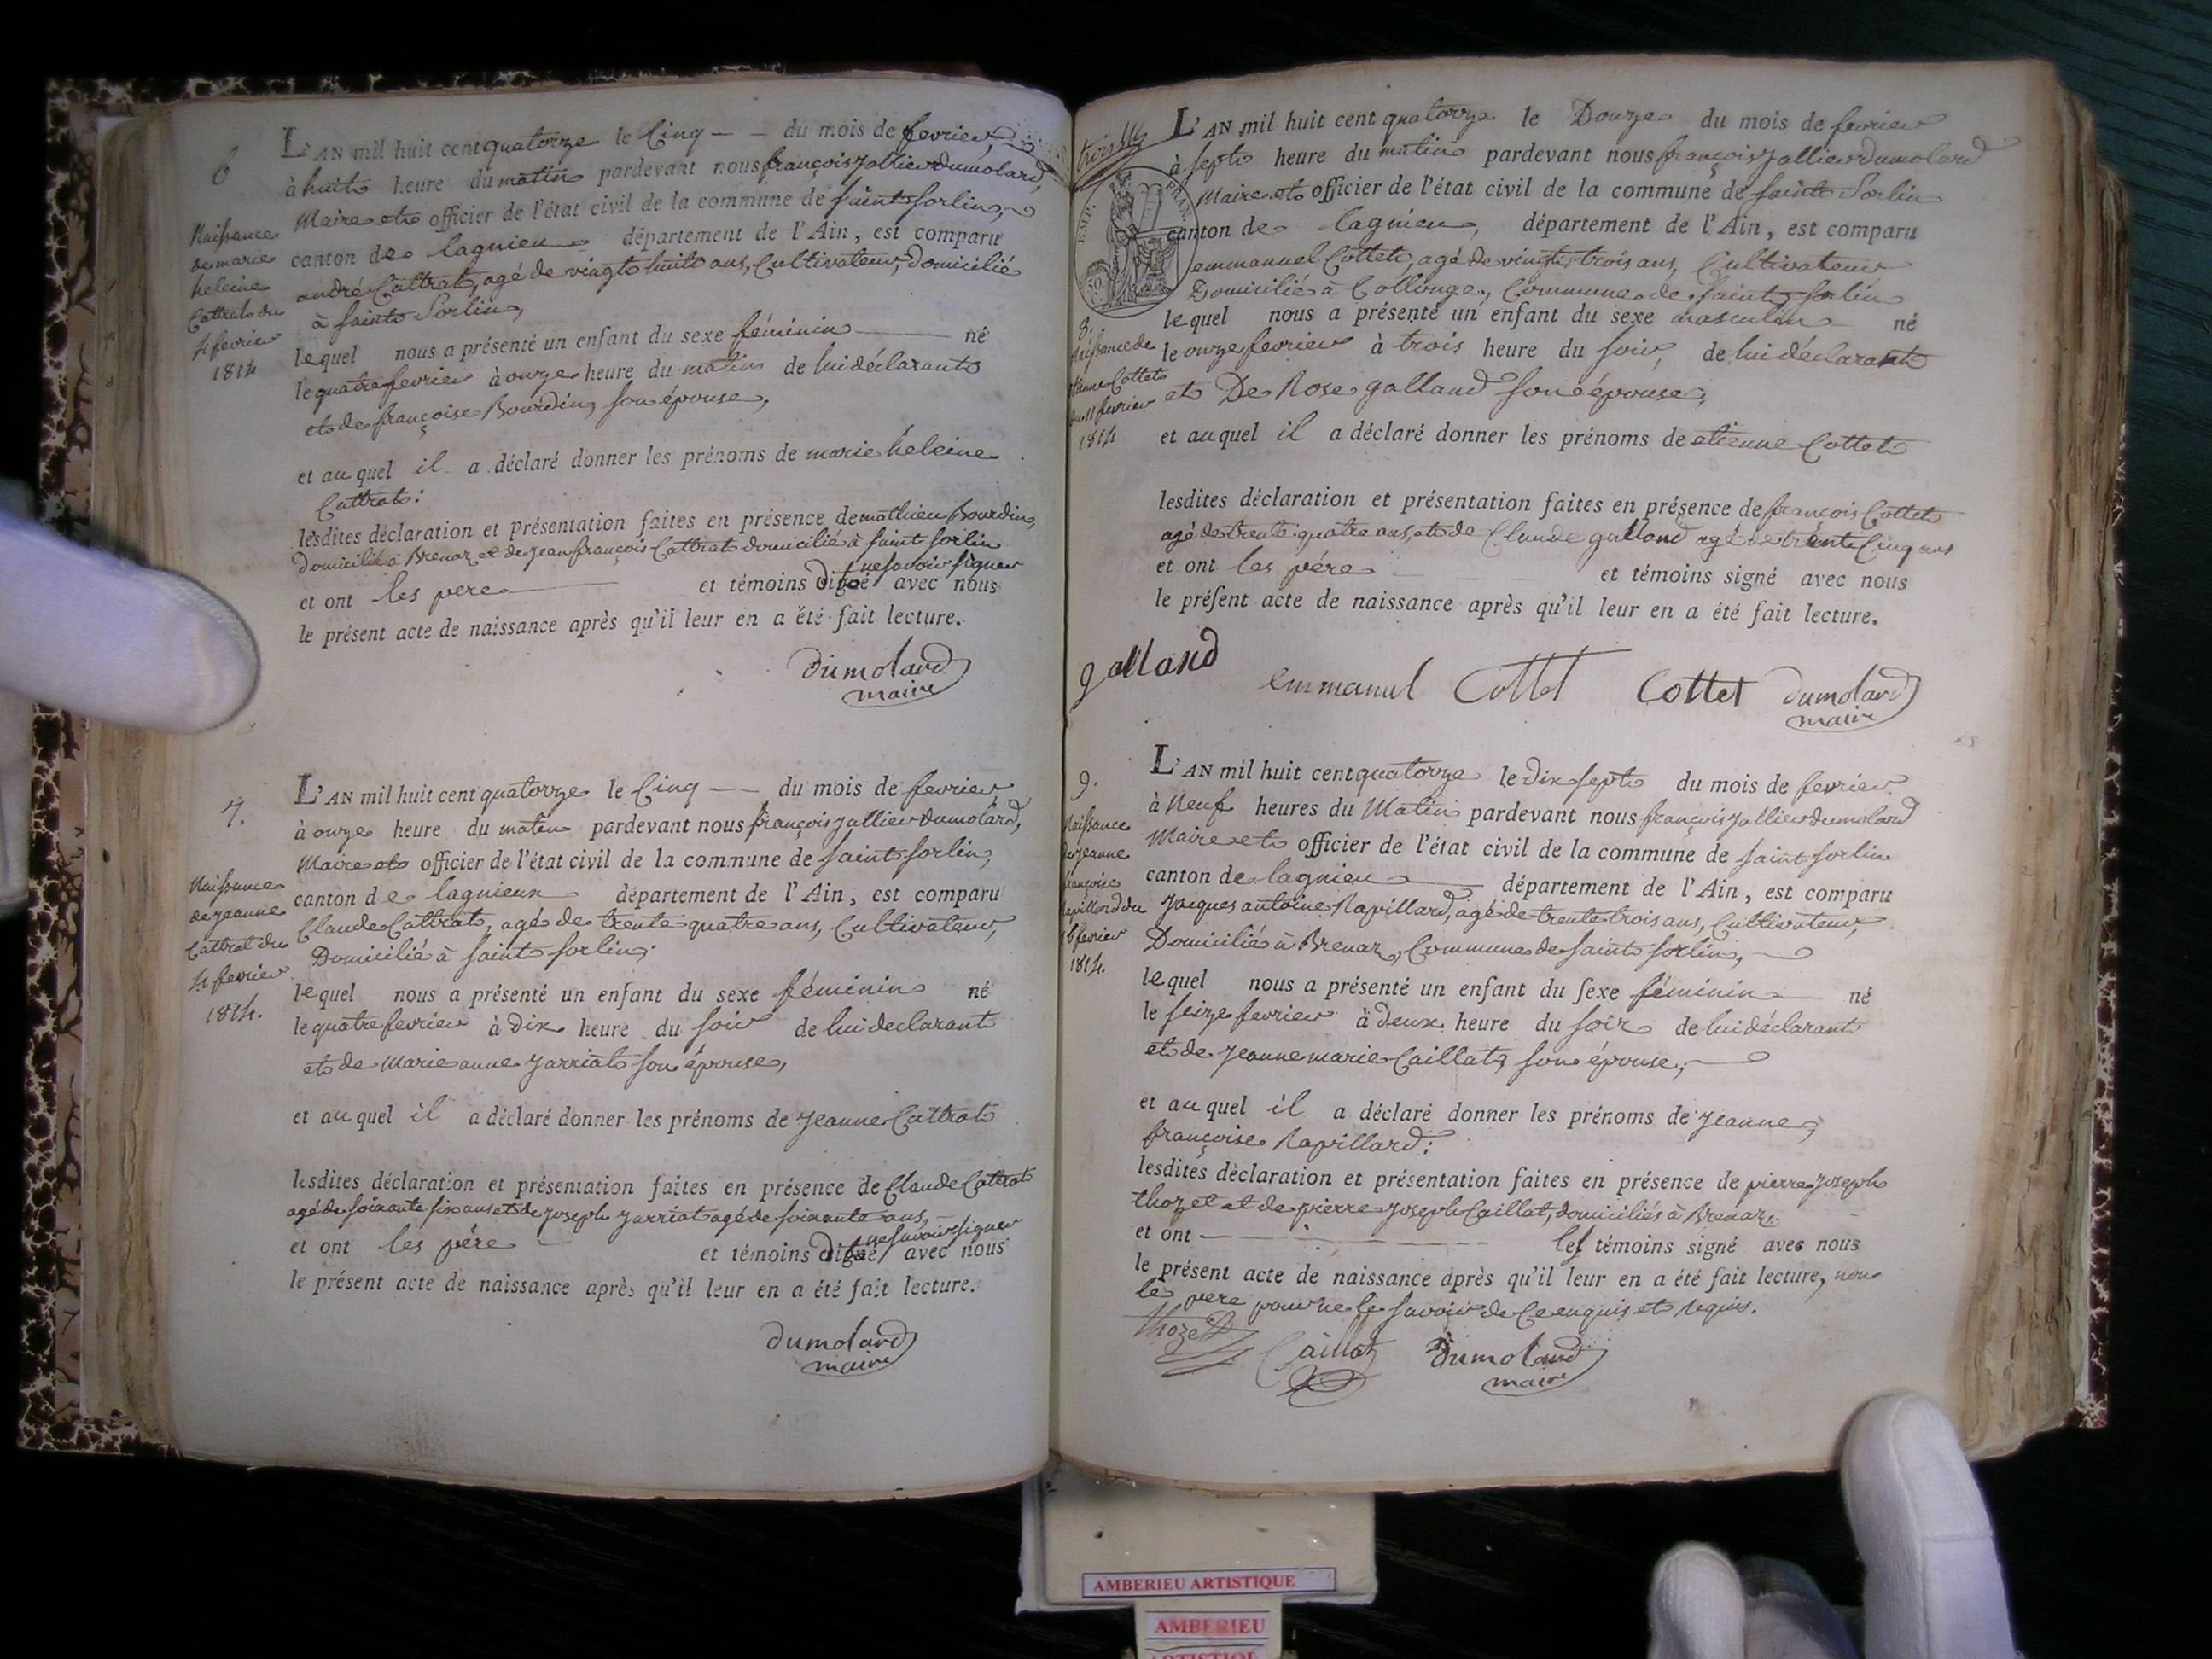 6
Naissance
de marie
heleine
Cattrat du
4 fevrier
1814
L'AN mil huit cent quatorze le Cinq — — du mois de fevrier,
à huit heure du matin pardevant nous françois jallier dumolard,
Maire et officier de l'état civil de la commune de saint Sorlin,
canton de lagnieu département de l'Ain, est comparu
andré Cattrat, agé de vingt huit ans, Cultivateur, Domicilié
à saint Sorlin,
lequel nous a présenté un enfant du sexe féminin — né
le quatre fevrier à onze heure du matin de lui déclarant
et de françoise Bourdin, son épouse,
et auquel il a déclaré donner les prénoms de marie heleine
Cattrat:
lesdites déclaration et présentation faites en présence de mathieu Bourdin,
domicilié à Brenaz et de jean françois Cattrat domicilié à saint Sorlin
ne savoir signer
et ont les pere — et témoins dit avec nous
le présent acte de naissance après qu'il leur en a été fait lecture.
Dumolard
maire
7.
Naissance
de jeanne
Cattrat du
4 fevrier
1814.
L'AN mil huit cent quatorze le Cinq — — du mois de fevrier
à onze heure du matin pardevant nous françois jallier dumolard,
Maire et officier de l'état civil de la commune de saint Sorlin,
canton de lagnieux département de l'Ain, est comparu
Claude Cattrat, agé de trente quatre ans, Cultivateur,
Domicilié à saint Sorlin,
lequel nous a présenté un enfant du sexe féminin né
le quatre fevrier à Dix heure du soir de lui declarant
et de Marie anne jarriat son épouse,
et auquel il a déclaré donner les prénoms de jeanne Cattrat
lesdites déclaration et présentation faites en présence de Claude Cattrat
agé de soixante six ans et de joseph jarriat agé de soixante ans,
ne savoir signer
et ont les pére — et témoins dit avec nous
le présent acte de naissance après qu'il leur en a été fait lecture.
dumolard
maire
EMP. FRAN.
50
8.
Naissance de
etienne Cottet
du 11 fevrier
1814
L'AN mil huit cent quatorze le Douze du mois de fevrier
à sept heure du matin pardevant nous françois jallier dumolard
Maire et officier de l'état civil de la commune de saint Sorlin
canton de lagnieu, département de l'Ain, est comparu
emmanuel Cottet, agé de vingt trois ans, Cultivateur
Domicilié à Collonge, Commune de saint Sorlin
lequel nous a présenté un enfant du sexe masculin — né
le onze fevrier à trois heure du soir, de lui déclarant
et De Rose galland son épouse,
et auquel il a déclaré donner les prénoms de etienne Cottet
lesdites déclaration et présentation faites en présence de françois Cottet
agé de trente quatre ans, et de Claude galland agé de trente Cinq ans
et ont les pére — et témoins signé avec nous
le présent acte de naissance après qu'il leur en a été fait lecture.
galland emmanuel Cottet Cottet dumolard
maire
9.
Naissance
de jeanne
françoise
Rapillard du
16 fevrier
1814.
L'AN mil huit cent quatorze le dix sept du mois de fevrier
à Neuf heures du Matin pardevant nous françois jallier dumolard
Maire et officier de l'état civil de la commune de saint Sorlin
canton de lagnieu — département de l'Ain, est comparu
Jacques antoine Rapillard, agé de trente trois ans, Cultivateur,
Domicilié à Brenaz, Commune de saint Sorlin,
lequel nous a présenté un enfant du sexe féminin — né
le seize fevrier à deux heure du soir de lui déclarant
et de jeanne marie Caillat, son épouse,
et auquel il a déclaré donner les prénoms de jeanne,
françoise Rapillard:
lesdites déclaration et présentation faites en présence de pierre joseph
thozet et de pierre joseph Caillat, domiciliés à Brenaz
et ont — les témoins signé avec nous
le présent acte de naissance après qu'il leur en a été fait lecture, non
le pere pour ne le savoir de Ce enquis et requis.
thozet Caillat Dumolard
maire
AMBERIEU ARTISTIQUE
AMBERIEU
ARTISTIQUE